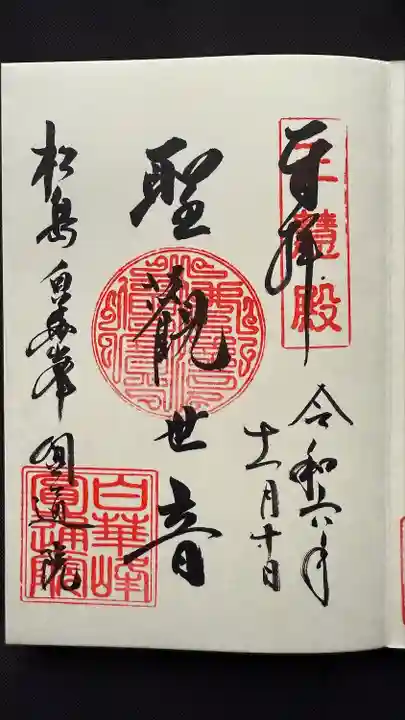 奉拝
三慧殿
令和六年
十一月十日
聖観世音
松島 白華峰 圓通院
白華峰圓通院